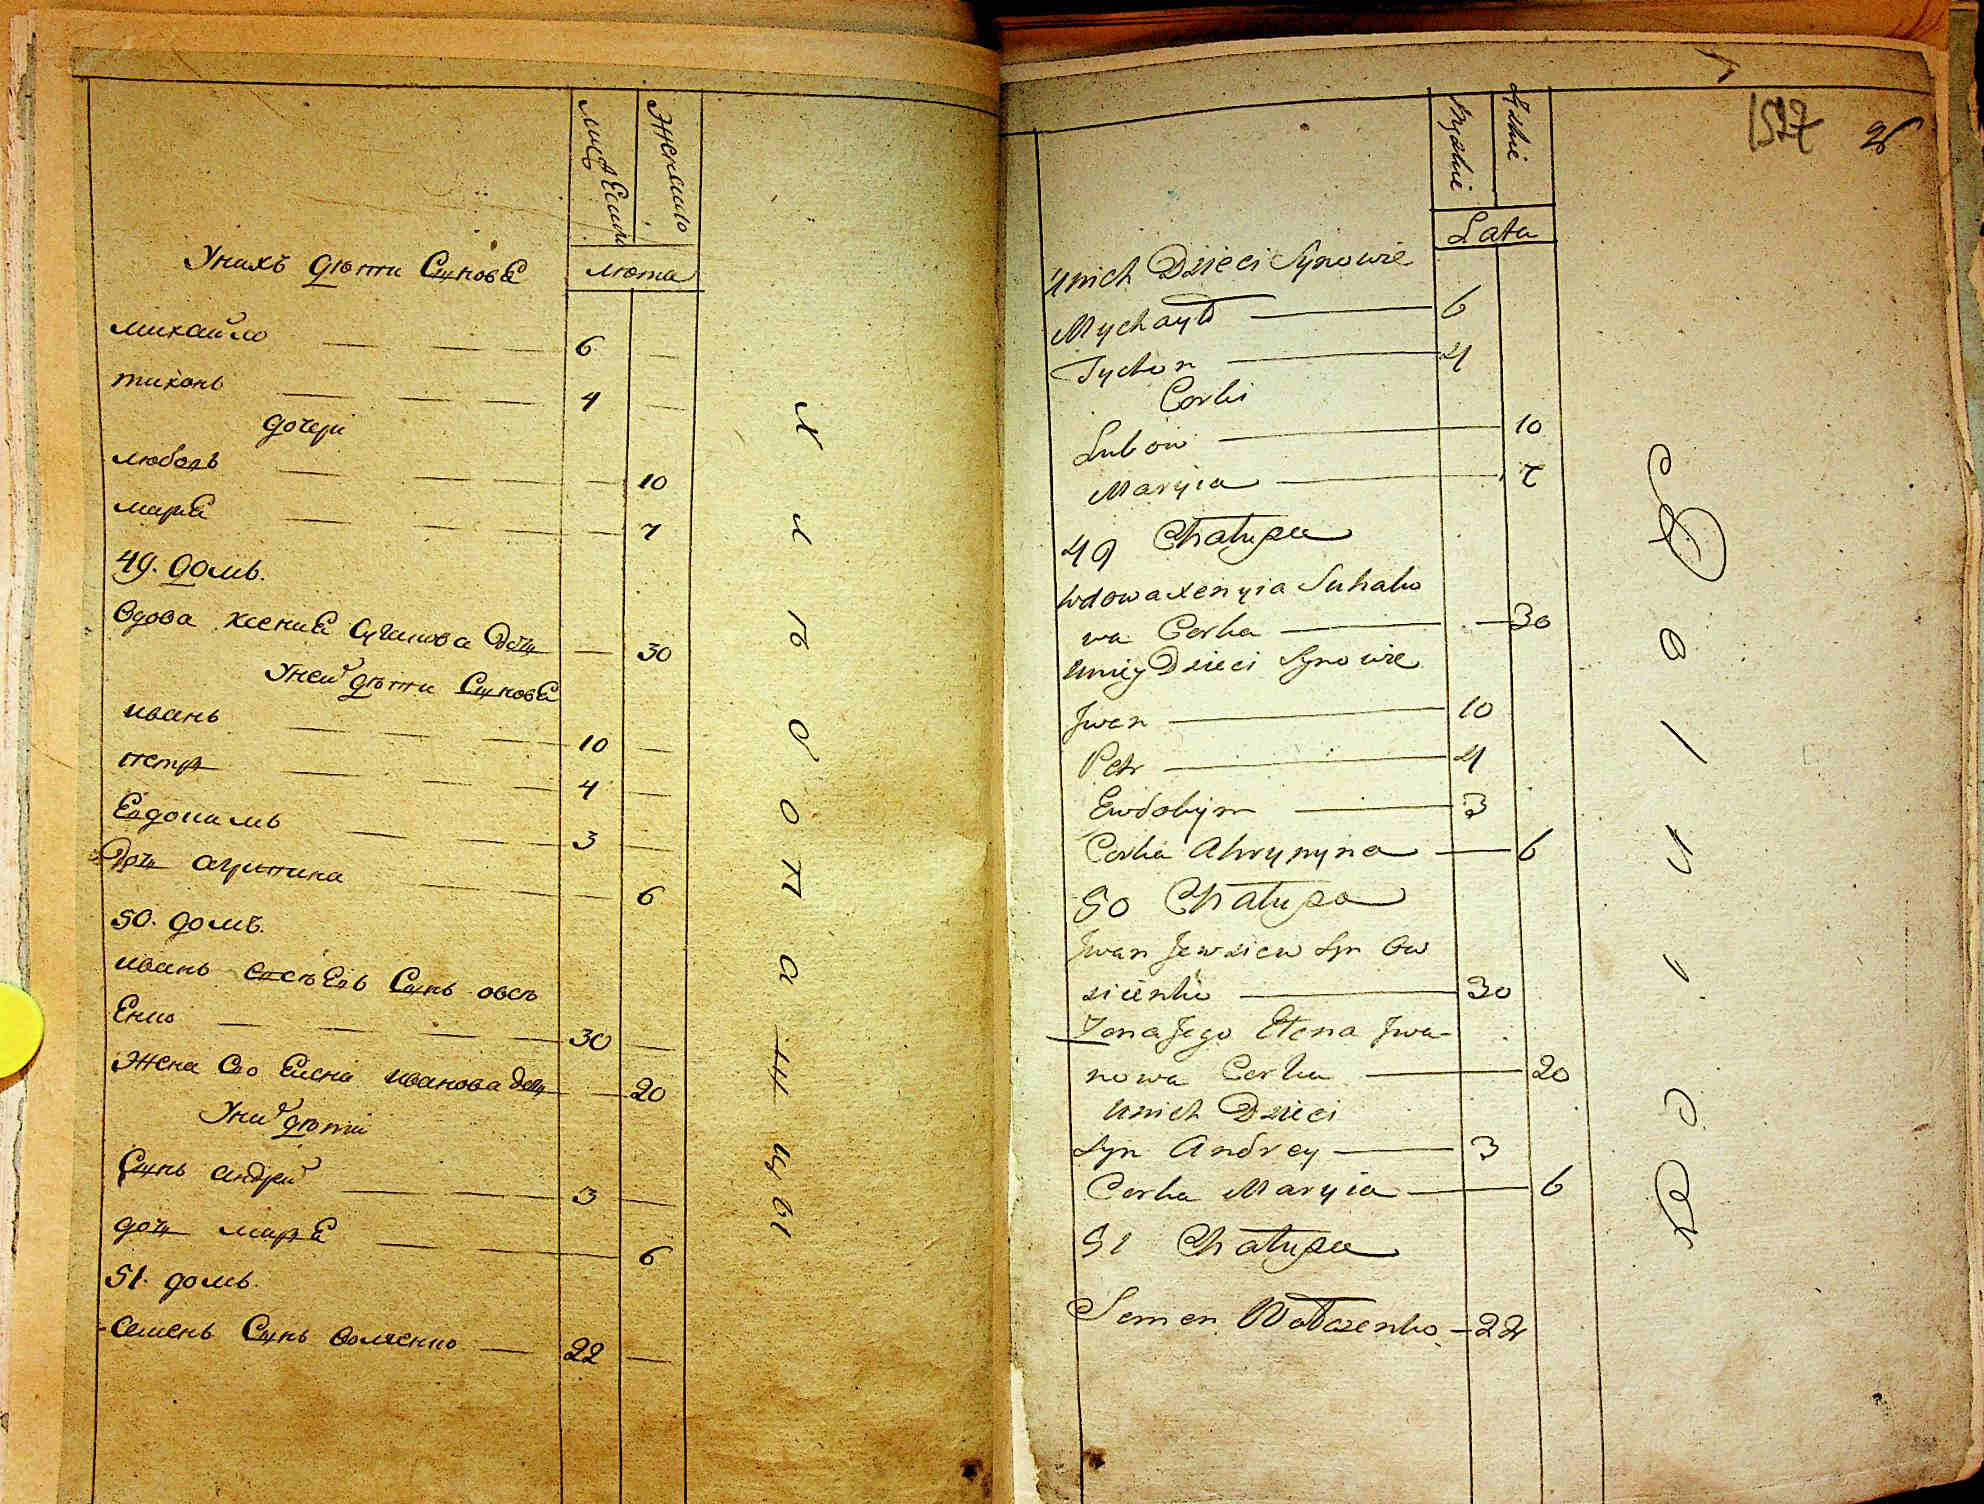 Женско
лѣта
Унихъ дѣтти Сынове
михайло 6
тихонь 4
дочери
любовь 10
мариа 7
49. домь.
Вдова ксениа Дочь 30
Уней дѣтти Сынове
ивань 10
петръ 4
Евдокимь 3
Дочь агрипина 6
50. домъ.
ивань Сынь овсѣ
Енко 30
Жена Его Елена иванова дочь 20
Уни дѣти
Сынь андрей 3
дочь мариа 6
51. домь.
Семень Сынь 22
х л ѣ б о п а ш ц ы
1527 26
Męzkie
Żeńskie
Lata
Unich Dzieci Synowie
Mychayło 6
Tychon 4
Corki
Lubow 10
Maryia 7
49 Chałupa
Wdowa Xenyia Suhako
wa Corka 30
Uniey Dzieci Synowie
Jwan 10
Petr 4
Ewdokym 3
Corka Ahrypyna 6
50 Chałupa
Jwan Jewsiew Syn Ow
sicenko 30
Żona Jego Elena Jwa-
nowa Corka 20
Unich Dzieci
Syn Andrey 3
Corka Maryia 6
51 Chałupa
Semen 22